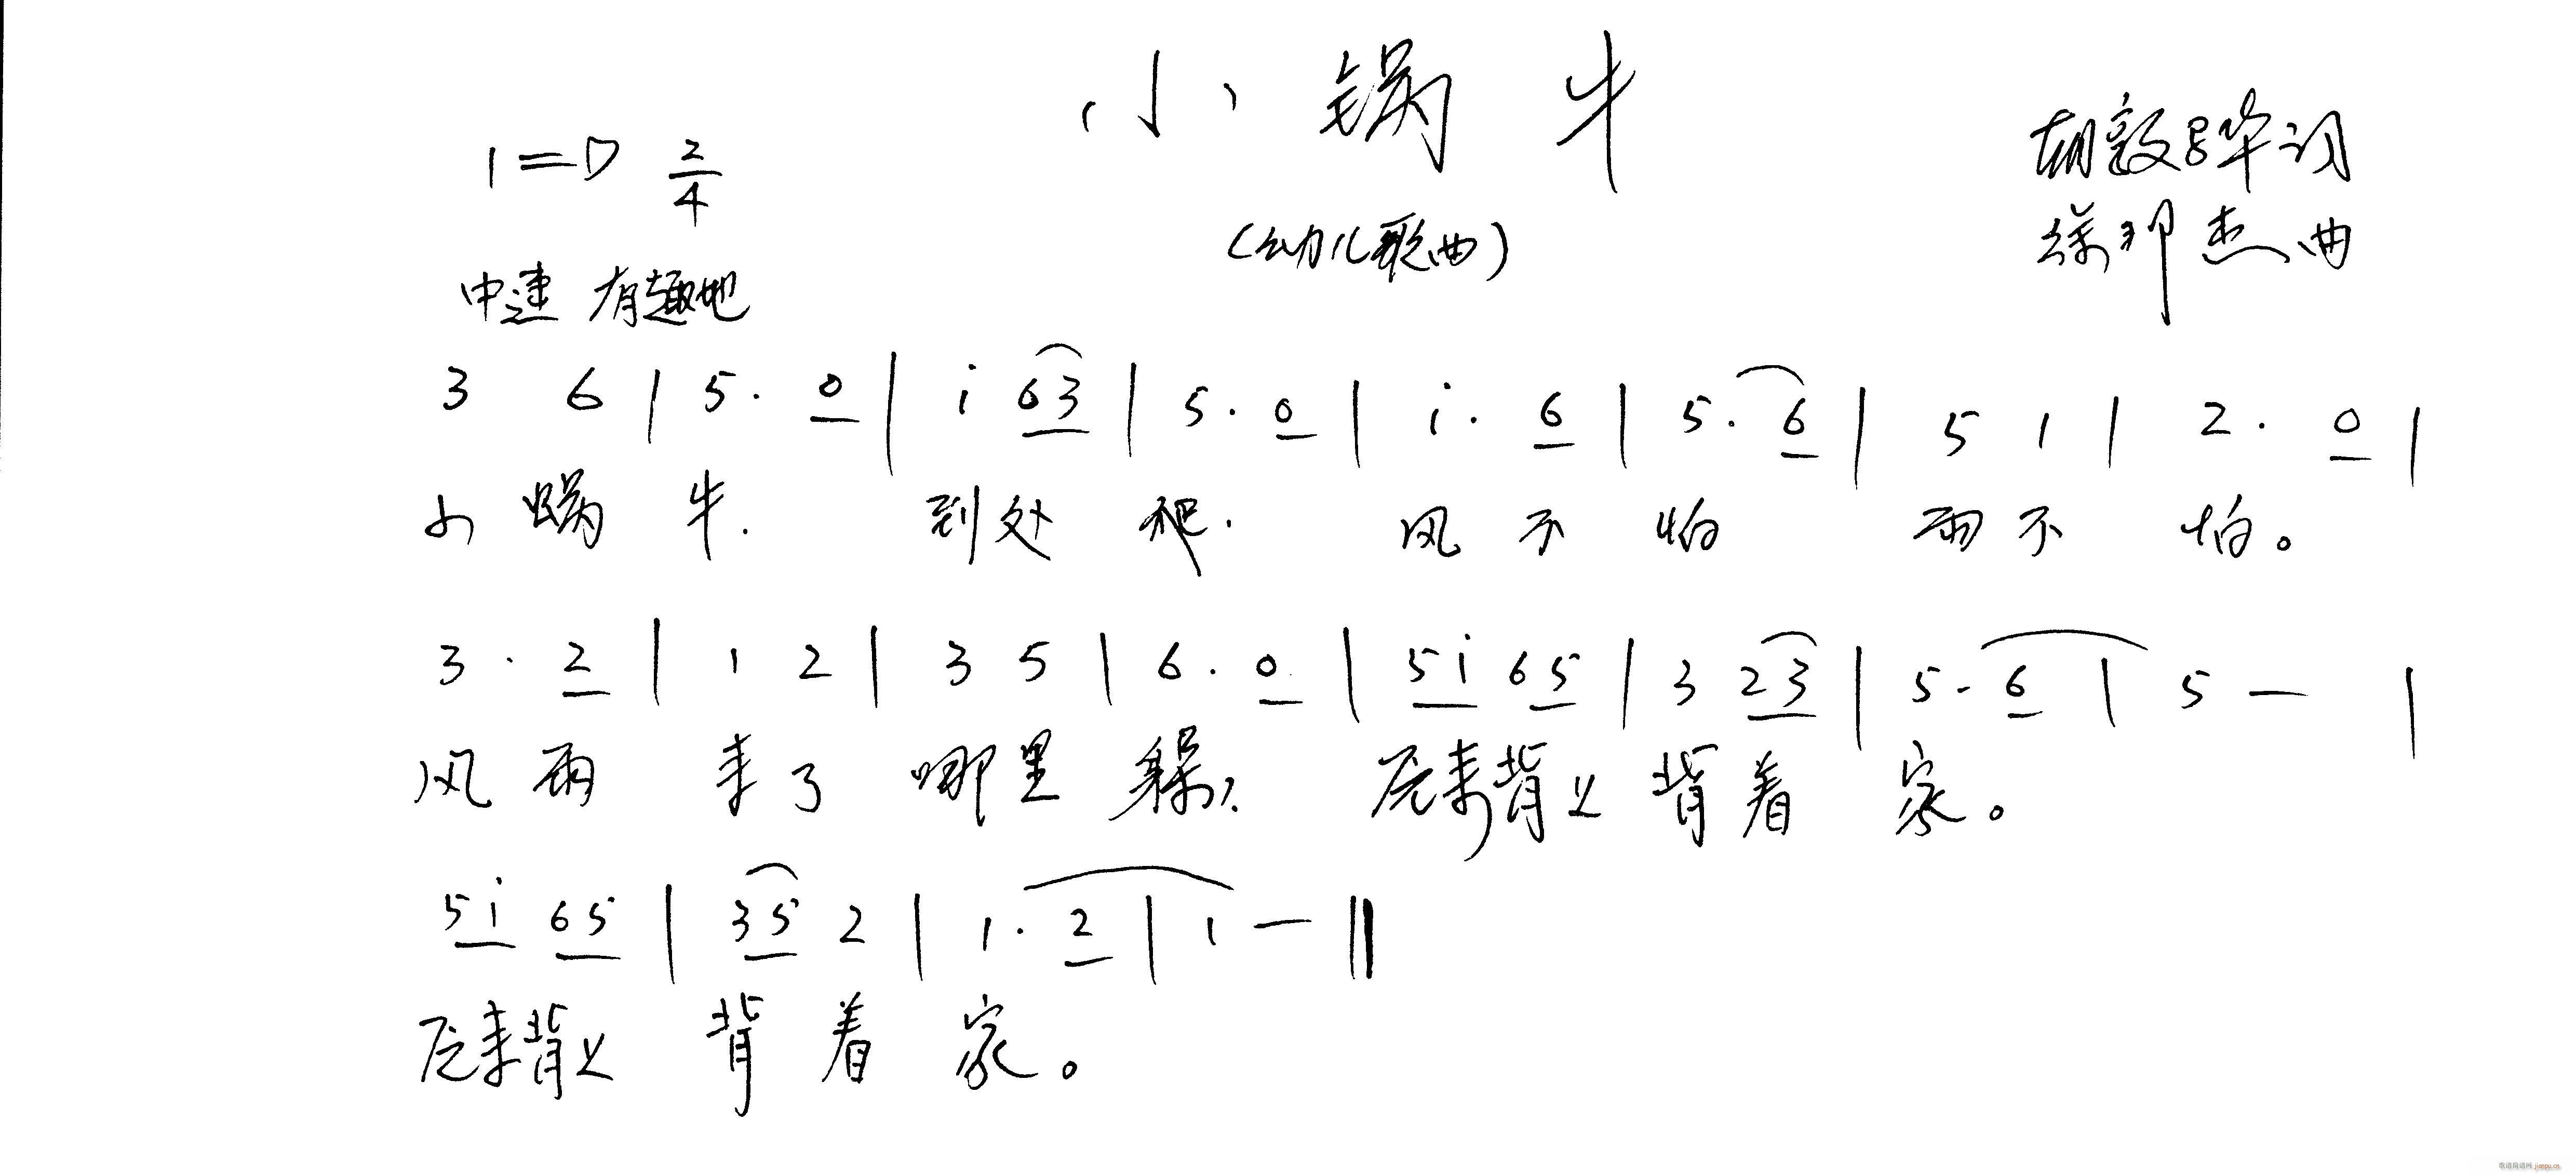 小锅牛
1=D 2/4
胡敦骅词
(幼儿歌曲)
徐邦杰曲
中速 有趣地
3 6 | 5· 0 | i 63 | 5· 0 | i· 6 | 5· 6 | 5 1 | 2· 0 |
小蜗牛. 到处爬. 风不怕 雨不怕。
3· 2 | 1 2 | 3 5 | 6· 0 | 5i 65 | 3 23 | 5· 6 | 5 — |
风雨来了哪里躲, 原来背上背着家。
5i 65 | 35 2 | 1· 2 | 1 — ‖
原来背上背着家。
歌谱简谱网 jianpu.cn